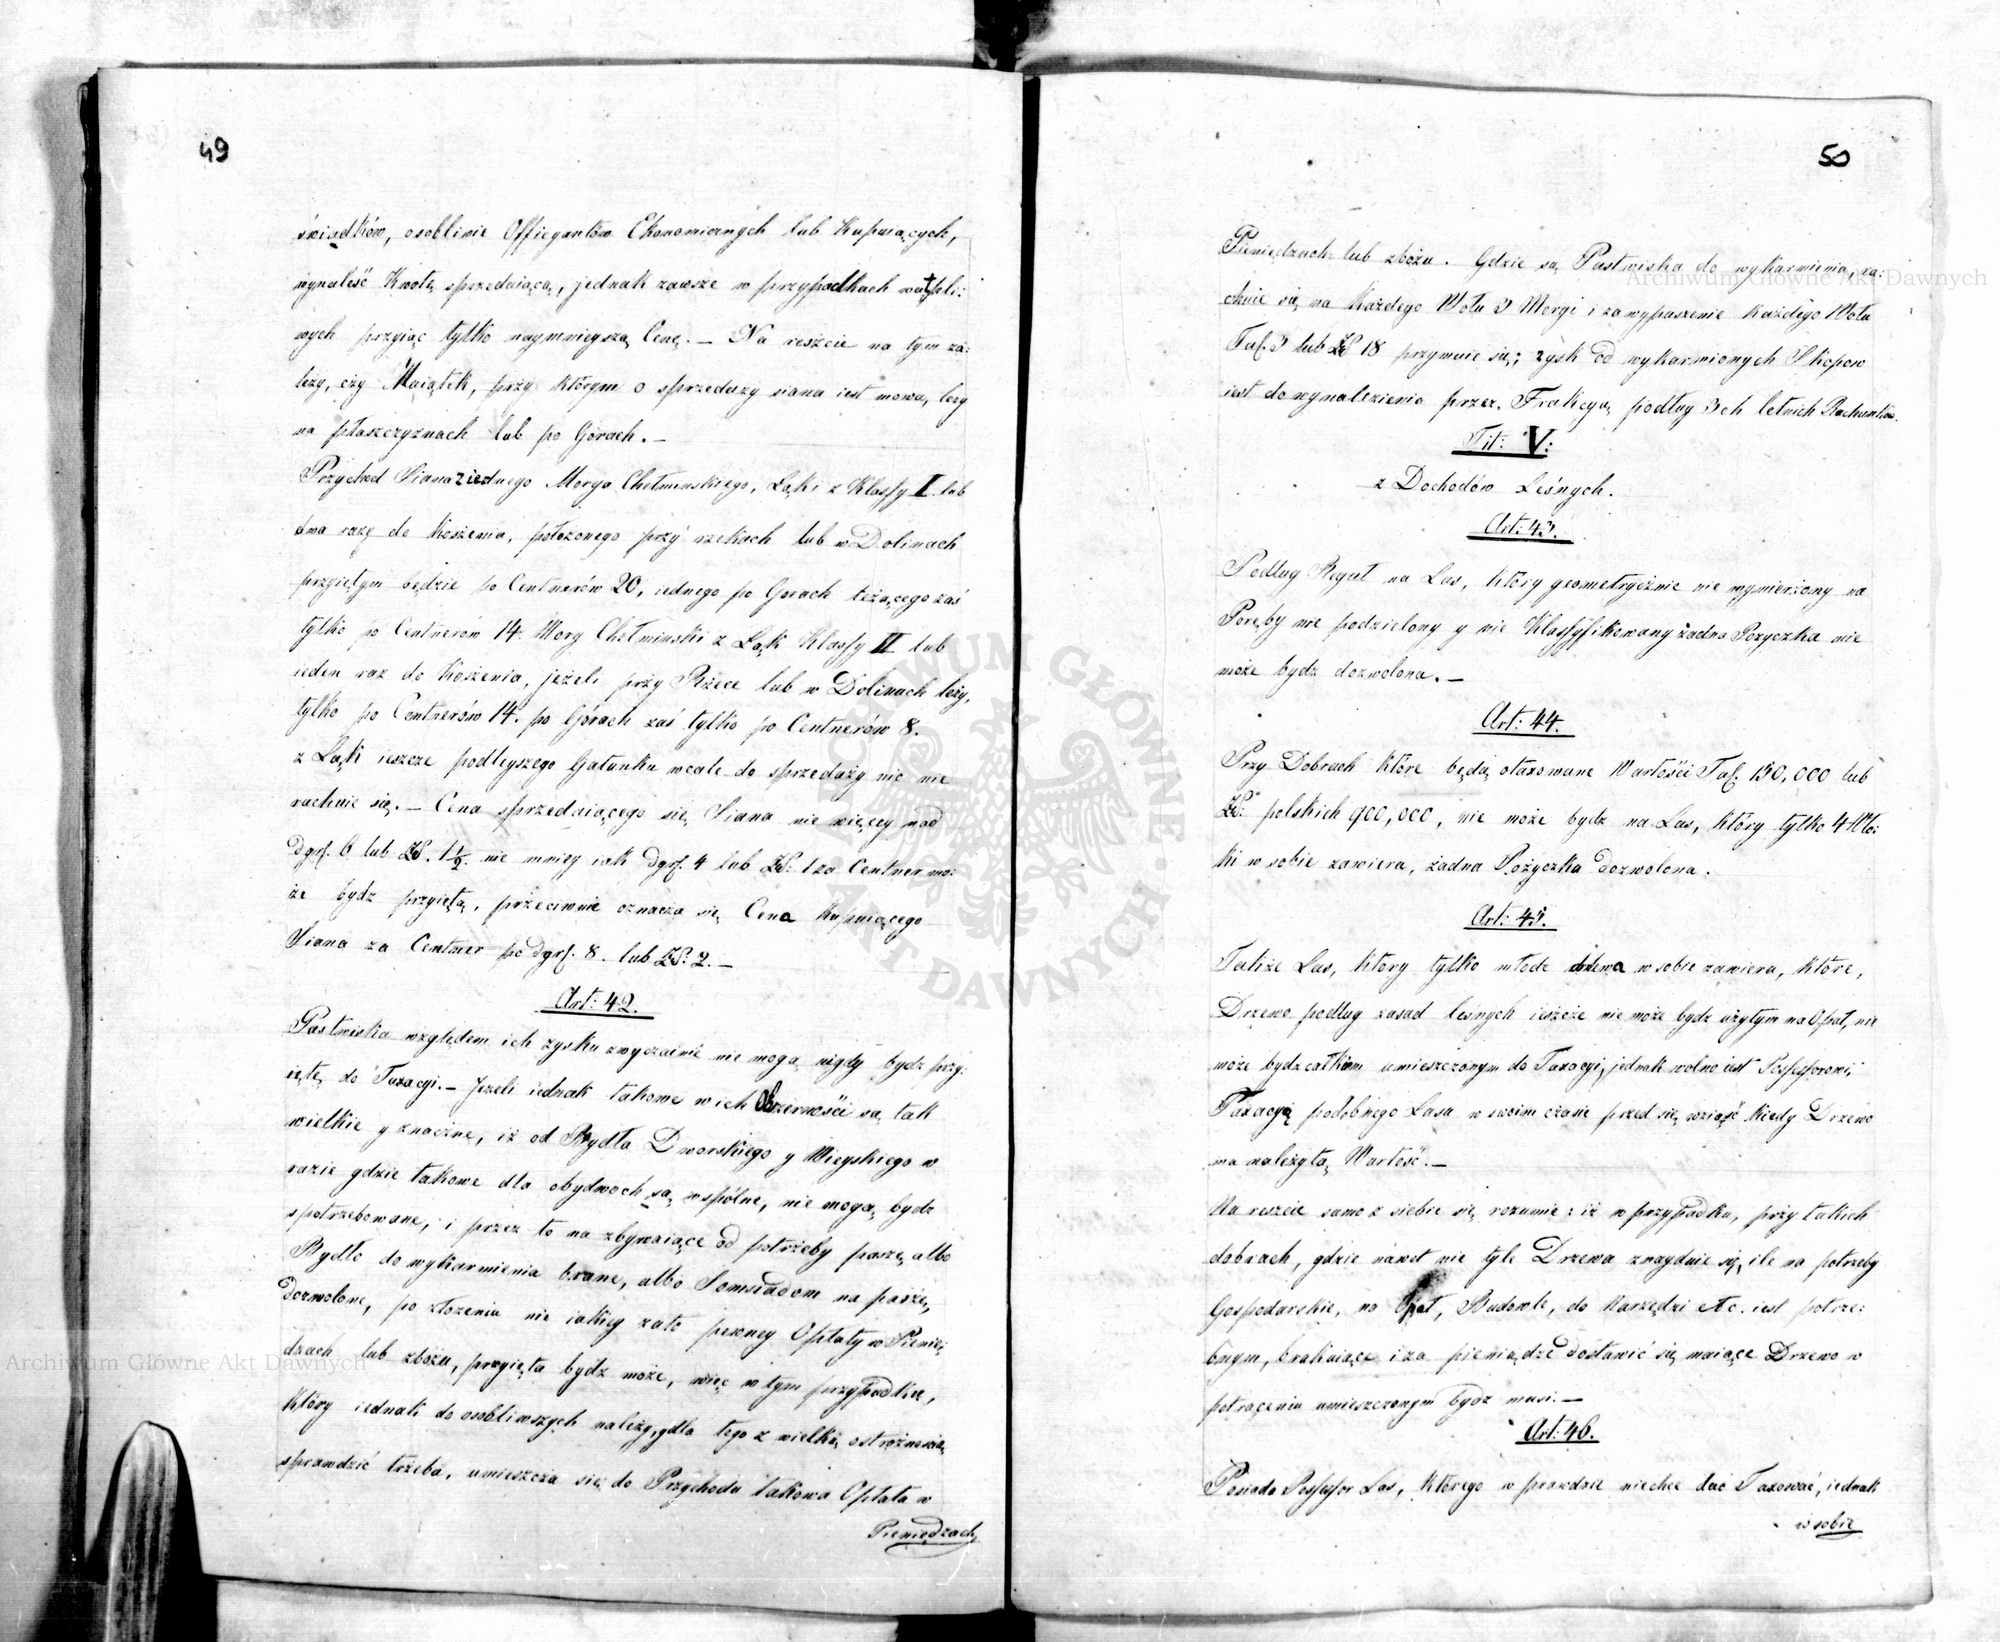 49
świadków, osobliwie Officyantów Ekonomicznych lub Kupuiących,
wynaleść Kwotę sprzedaiącą, jednak zawsze w przypadkach wątpli:
wych przyiąc tylko naymnieyszą Cenę. — Na reszcie na tym za:
leży, czy Maiątek, przy którym o sprzedaży siana iest mowa, leży
na płaszczyznach lub po Górach. —
Przychod Siana z iednego Morga Chełminskiego, Łąki z Klassy I lub
dwa razy do Koszenia, położonego przy rzekach lub w Dolinach
przyiętym będzie po Centnerów 20, iednego po Gorach leżącego zaś
tylko po Centnerów 14. Morg Chełminski z Łąk Klassy II lub
ieden raz do Koszenia, jeżeli przy Rzece lub w Dolinach leży,
tylko po Centnerów 14. po Górach zaś tylko po Centnerów 8.
z Łąki ieszcze podleyszego Gatunku wcale do sprzedaży nic nie
rachuie się. — Cena sprzedaiącego się Siana nie więcey nad
dgrſ. 6 lub Zł. 1 1/2. nie mniey iak dgrſ. 4 lub Zł: 1 za Centner mo:
że bydz przyiętą, przeciwnie oznacza się Cena Kupuiącego
Siana za Centner po dgrſ. 8. lub Zł: 2. —
Art: 42.
Pastwiska względem ich zysku zwyczainie nie mogą nigdy bydz przy:
ięte do Taxacyi. — Jeżeli iednak takowe w ich Obszerności są tak
wielkie y znaczne, iż od Bydła Dworskiego y Wieyskiego w
razie gdzie takowe dla obydwoch są wspólne, nie mogą bydz
spotrzebowane, i przez to na zbywaiące od potrzeby paszę, albo
Bydło do wykarmienia brane, albo Somsiadom na paszę,
dozwolone, po złożeniu nie iakiey zato pewney Opłaty w Pienię:
dzach lub zbożu, przyięta bydz może, więc w tym przypadku,
Który iednak do osobliwszych należy, y dla tego z wielką ostrożnością
sprawdzić trzeba, umieszcza się do Przychodu takowa Opłata w
Pieniędzach
50
Pieniędzach lub zbożu. Gdzie są Pastwiska do wykarmienia, ra:
chuie się na Każdego Wołu 3 Morgi i za wypaszenie Każdego Wołu
Tal. 3 lub Zł 18 przymuie się; zysk od wykarmionych Skopow
iest do wynalezienia przez Frakcyą podług 3ch letnich Rachunków.
Tit: V:
z Dochodów Leśnych.
Art: 43.
Podług Reguł na Las, który geometrycznie nie wymierzony na
Poręby nie podzielony y nie Klassyfikowany żadna Pożyczka nie
może bydz dozwolona. —
Art: 44.
Przy Dobrach które będą otaxowane Wartości Tal. 150,000 lub
Zł: polskich 900,000, nie może bydz na Las, który tylko 4 Wło:
ki w sobie zawiera, żadna Pożyczka dozwolona.
Art: 45.
Takze Las, który tylko młode drzewa w sobie zawiera, które,
Drzewo podług zasad leśnych ieszcze nie może bydz użytym na Opał, nie
może bydz całkiem umieszczonym do Taxacyi, jednak wolno iest Possessorowi,
Taxacyą podobnego Lasu w swoim czasie przed się wziąść kiedy Drzewo
ma należytą Wartość. —
Na reszcie samo z siebie się rozumie: iż w przypadku, przy takich
dobrach, gdzie nawet nie tyle Drzewa znayduie się, ile na potrzeby
Gospodarskie, na Opał, Budowle, do Narzędzi etc. iest potrze:
bnym, brakuiące i za pieniądze dostawić się maiące Drzewo w
potrąceniu umieszczonym bydz musi. —
Art: 46.
Posiada Possessor Las, którego w prawdzie niechce dać Taxować, iednak
w sobie
Archiwum Główne Akt Dawnych
Archiwum Główne Akt Dawnych
ARCHIWUM GŁÓWNE AKT DAWNYCH